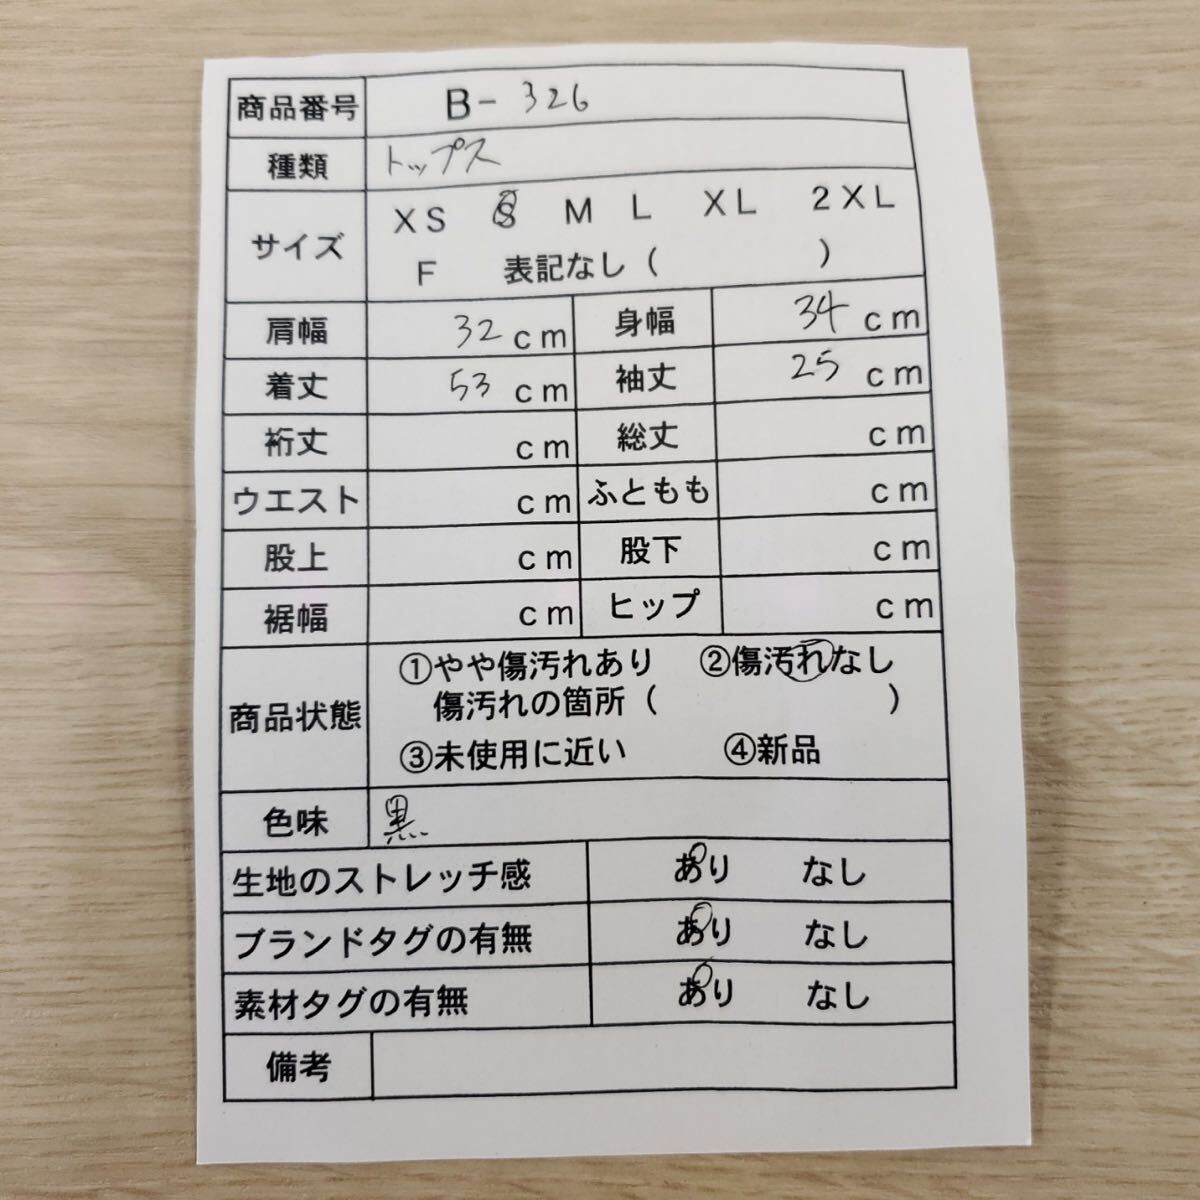 商品番号 B-326
種類 トップス
サイズ XS S M L XL 2XL
F 表記なし( )
肩幅 32cm 身幅 34cm
着丈 53cm 袖丈 25cm
裄丈 cm 総丈 cm
ウエスト cm ふともも cm
股上 cm 股下 cm
裾幅 cm ヒップ cm
商品状態 ①やや傷汚れあり ②傷汚れなし
傷汚れの箇所( )
③未使用に近い ④新品
色味 黒
生地のストレッチ感 あり なし
ブランドタグの有無 あり なし
素材タグの有無 あり なし
備考